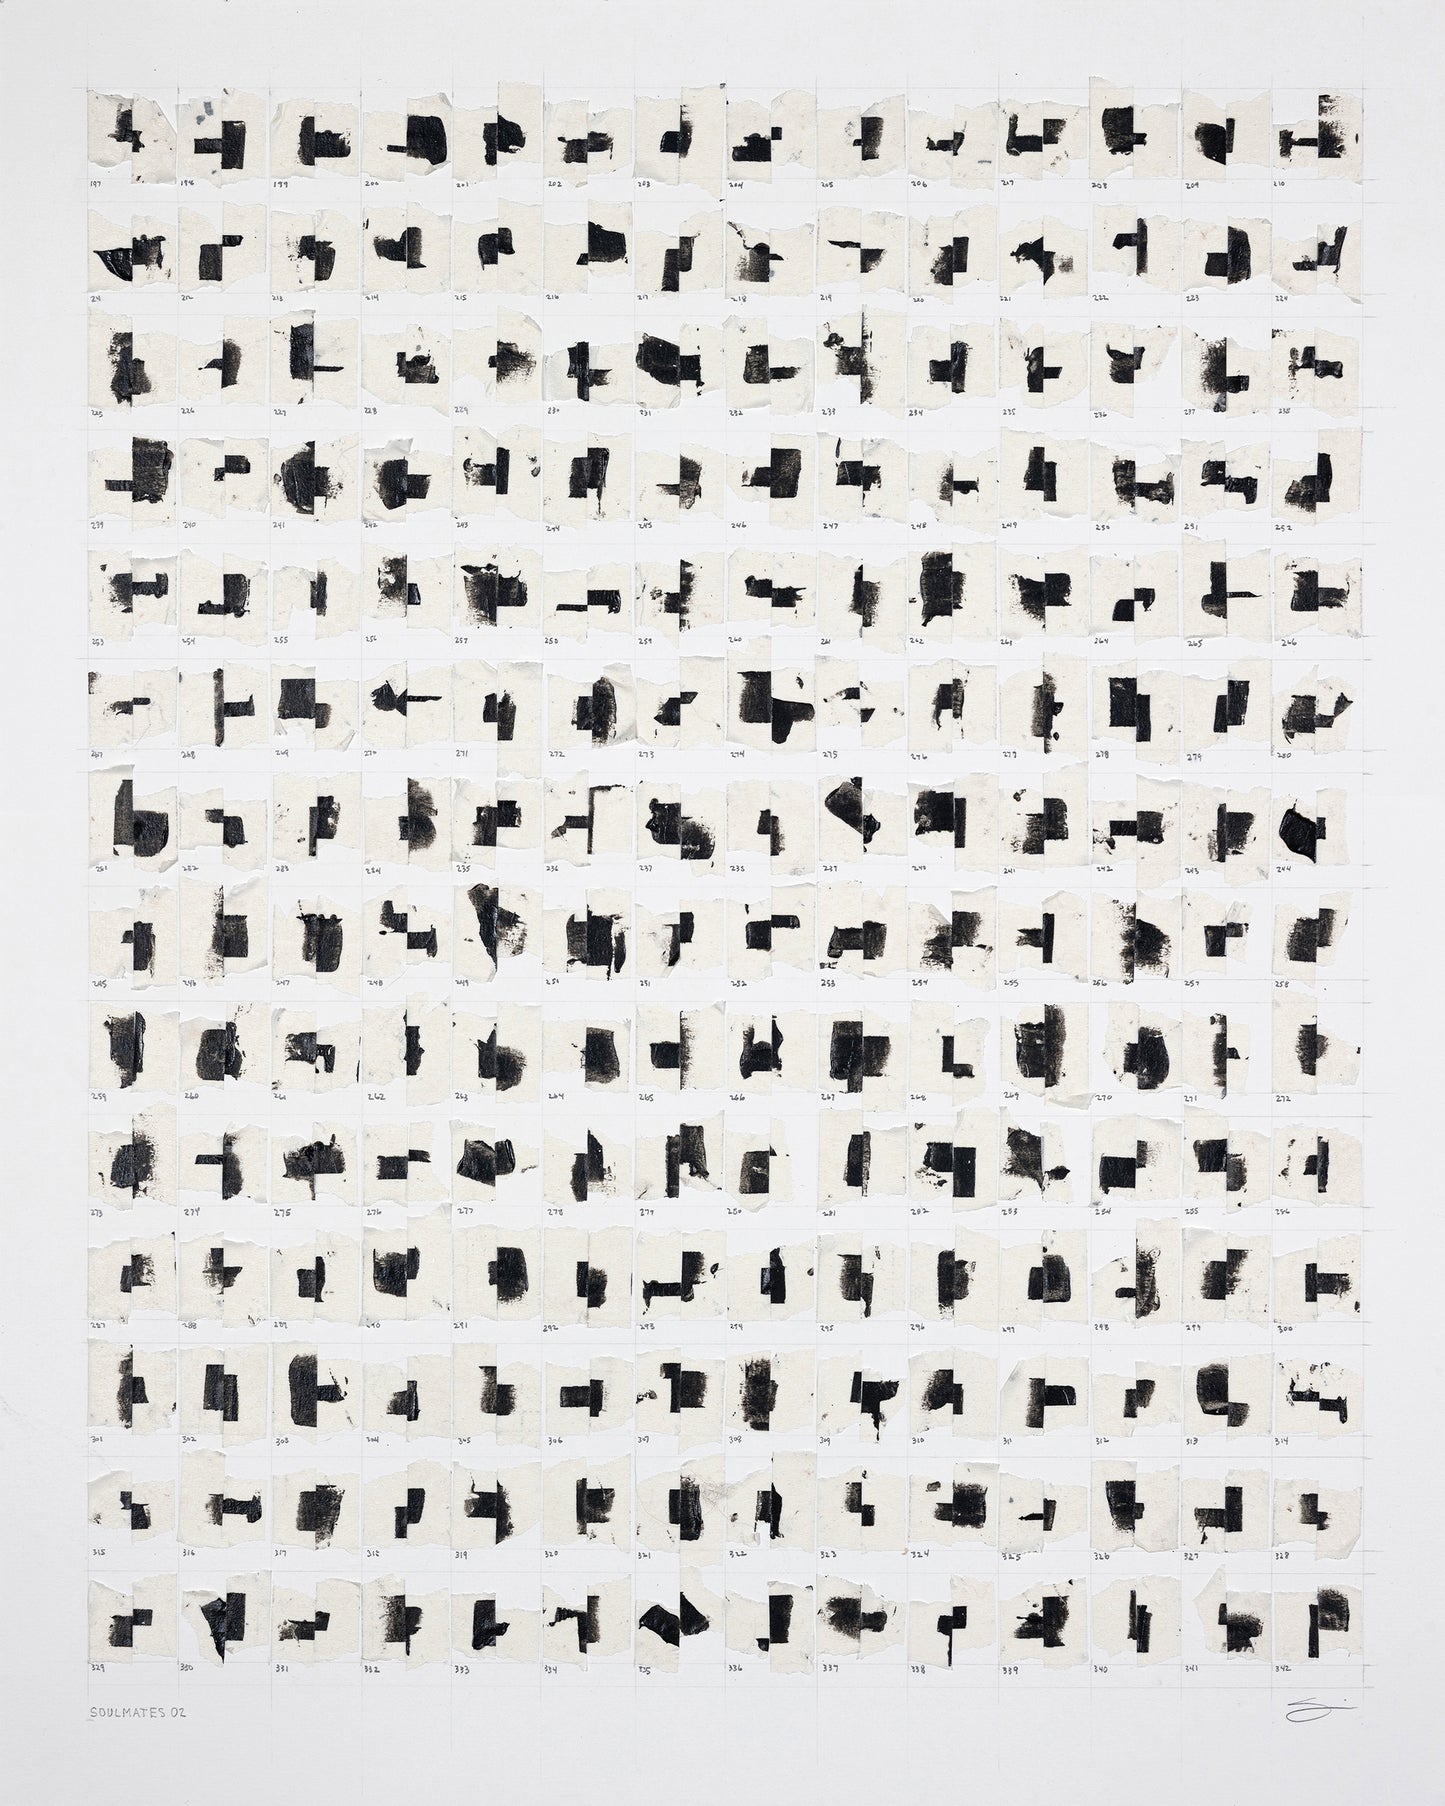 197 198 199 200 201 202 203 204 205 206 207 208 209 210
211 212 213 214 215 216 217 218 219 220 221 222 223 224
225 226 227 228 229 230 231 232 233 234 235 236 237 238
239 240 241 242 243 244 245 246 247 248 249 250 251 252
253 254 255 256 257 250 259 260 261 262 263 264 265 266
267 268 269 270 271 272 273 274 275 276 277 278 279 280
281 282 283 284 235 236 237 238 239 240 241 242 243 244
245 246 247 248 249 251 252 253 254 255 256 257 258
259 260 261 262 263 264 265 266 267 268 269 270 271 272
273 274 275 276 277 278 279 280 281 282 283 284 285 286
287 288 289 290 291 292 293 294 295 296 297 298 299 300
301 302 303 304 305 306 307 308 309 310 311 312 313 314
315 316 317 318 319 320 321 322 323 324 325 326 327 328
329 330 331 332 333 334 335 336 337 338 339 340 341 342
SOULMATES 02